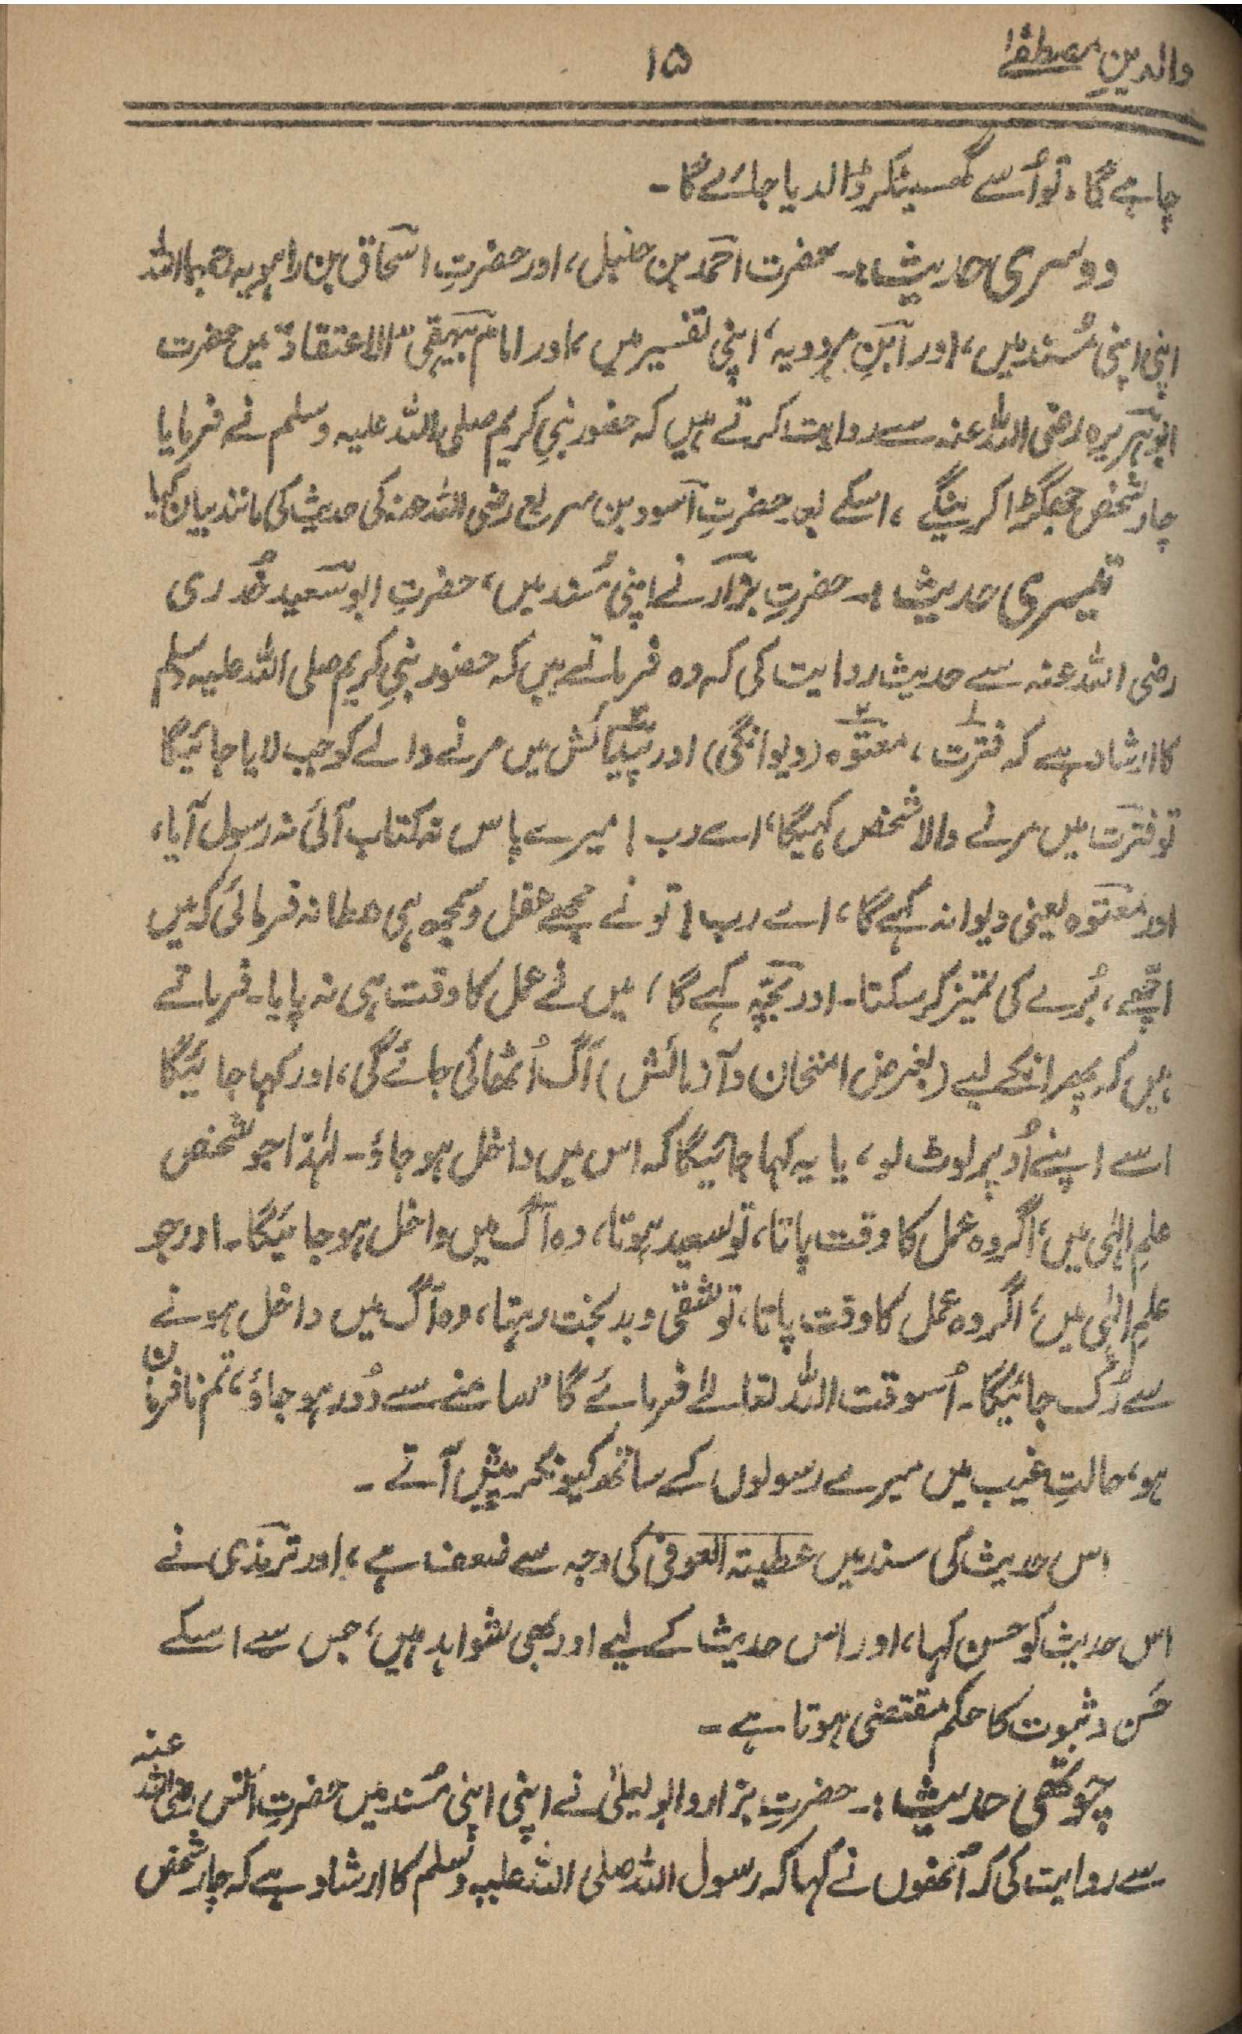 والدینِ مصطفےٰ
۱۵
چاہے گا، تو اُسے گھسیٹکر ڈالدیا جائے گا۔
دوسری حدیث:۔ حضرت احمد بن حنبل، اور حضرتِ اسحاق بن راہویہ رحمہما اللہ
اپنی اپنی مُسند میں، اور ابنِ مردویہ، اپنی تفسیر میں، اور امام بیہقی ”الاعتقاد“ میں حضرت
ابوہریرہ رضی اللہ عنہ سے روایت کرتے ہیں کہ حضور نبیِ کریم صلی اللہ علیہ وسلم نے فرمایا
چار شخص جھگڑا کرینگے، اسکے بعد حضرتِ اسود بن سریع رضی اللہ عنہ کی حدیث کی مانند بیان کیا!
تیسری حدیث:۔ حضرتِ بزار نے اپنی مُسند میں، حضرتِ ابوسعید خُدری
رضی اللہ عنہ سے حدیث روایت کی کہ وہ فرماتے ہیں کہ حضور نبیِ کریم صلی اللہ علیہ وسلم
کا ارشاد ہے کہ فترت۱، معتوہ۲ (دیوانگی) اور پیدائش۳ میں مرنے والے کو جب لایا جائیگا
تو فترت میں مرنے والا شخص کہیگا، اے رب! میرے پاس نہ کتاب آئی نہ رسول آیا،
اور معتوہ یعنی دیوانہ کہے گا، اے رب! تو نے مجھے عقل و سمجھ ہی عطا نہ فرمائی کہ میں
اچھے، بُرے کی تمیز کر سکتا۔ اور بچّہ کہے گا، میں نے عمل کا وقت ہی نہ پایا۔ فرماتے
ہیں کہ پھر انکے لیے (بغرض امتحان و آزمائش) آگ اُٹھائی جائے گی، اور کہا جائیگا
اسے اپنے اُوپر لوٹ لو، یا یہ کہا جائیگا کہ اس میں داخل ہو جاؤ۔ لہٰذا جو شخص
علمِ الٰہی میں، اگر وہ عمل کا وقت پاتا، تو سعید ہوتا، وہ آگ میں داخل ہو جائیگا۔ اور جو
علمِ الٰہی میں، اگر وہ عمل کا وقت پاتا، تو شقی و بدبخت رہتا، وہ آگ میں داخل ہونے
سے رُک جائیگا۔ اُسوقت اللہ تعالےٰ فرمائے گا ”سامنے سے دُور ہو جاؤ، تم نافرمان
ہو، حالتِ غیب میں میرے رسولوں کے ساتھ کیونکر پیش آتے۔
اس حدیث کی سند میں عطیتہ العوفی کی وجہ سے ضعف ہے، اور ترمذی نے
اس حدیث کو حسن کہا، اور اس حدیث کے لیے اور بھی شواہد ہیں، جس سے اسکے
حَسن و ثبوت کا حکم مقتضی ہوتا ہے۔
چوتھی حدیث:۔ حضرتِ بزار و ابو یعلیٰ نے اپنی اپنی مُسند میں حضرتِ انس رضی اللہ عنہ
سے روایت کی کہ اُنھوں نے کہا کہ رسول اللہ صلی اللہ علیہ وسلم کا ارشاد ہے کہ چار شخص